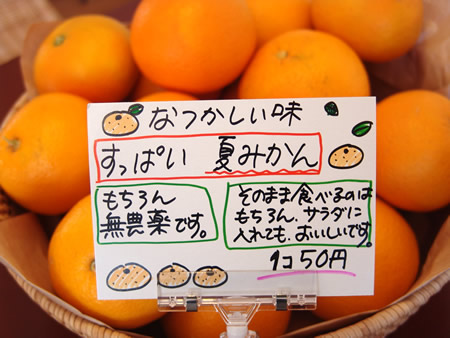 なつかしい味
すっぱい 夏みかん
もちろん
無農薬です。
そのまま食べるのは
もちろん、サラダに
入れても、おいしいです。
1コ50円